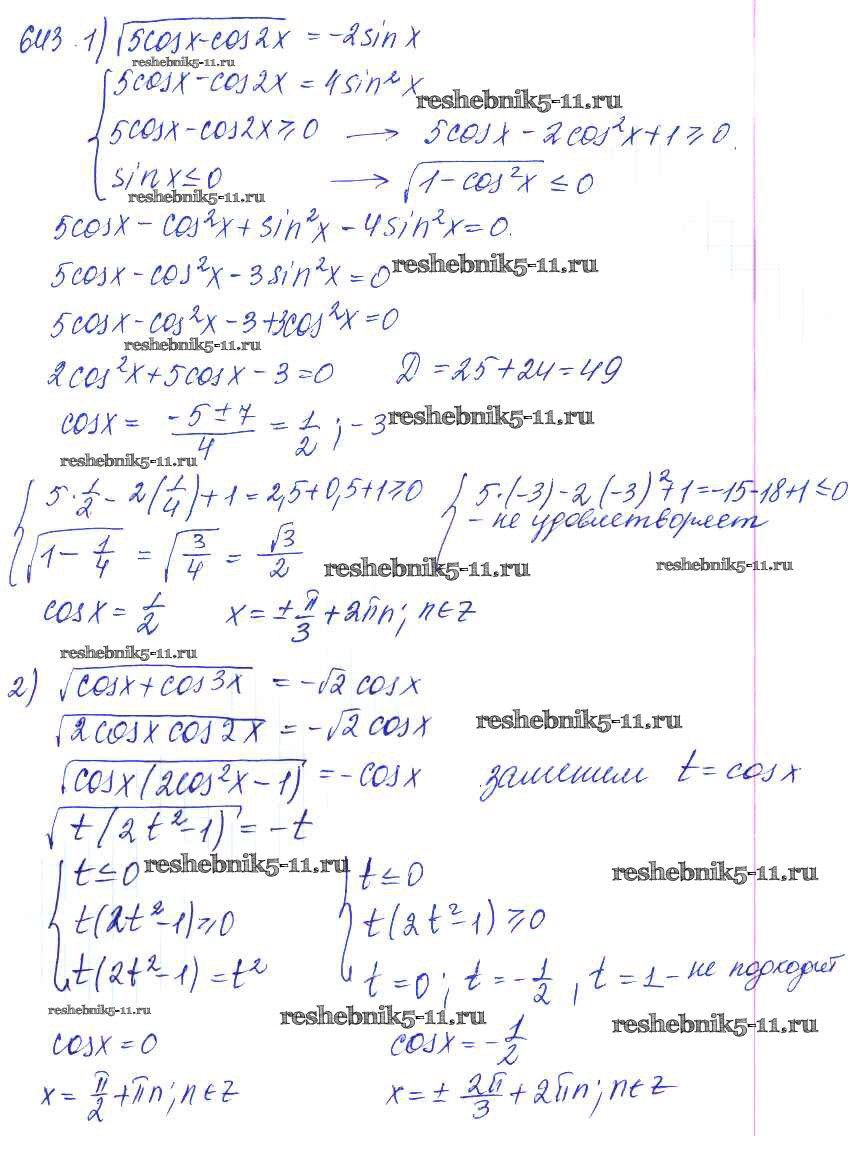 643 1) √(5cosx-cos2x) = -2sinx
reshebnik5-11.ru
{ 5cosx-cos2x = 4sin²x
reshebnik5-11.ru
5cosx-cos2x ≥ 0 → 5cosx - 2cos²x+1 ≥ 0.
sinx ≤ 0 → √(1-cos²x) ≤ 0
reshebnik5-11.ru
5cosx - cos²x + sin²x - 4sin²x = 0.
5cosx - cos²x - 3sin²x = 0 reshebnik5-11.ru
5cosx - cos²x - 3+3cos²x = 0
reshebnik5-11.ru
2cos²x + 5cosx - 3 = 0 D = 25 + 24 = 49
cosx = (-5 ± 7)/4 = 1/2 ; -3 reshebnik5-11.ru
reshebnik5-11.ru
{ 5·1/2 - 2(1/4) + 1 = 2,5+0,5+1 ≥ 0 { 5·(-3)-2(-3)²+1 = -15-18+1 ≤ 0
- не удовлетворяет
√(1 - 1/4) = √(3/4) = √3/2 reshebnik5-11.ru reshebnik5-11.ru
cosx = 1/2 x = ± π/3 + 2πn; n∈Z
reshebnik5-11.ru
2) √(cosx + cos3x) = -√2 cosx
√(2cosx cos2x) = -√2 cosx reshebnik5-11.ru
√(cosx(2cos²x - 1)) = -cosx заменим t = cosx
√(t(2t²-1)) = -t
{ t ≤ 0 reshebnik5-11.ru { t ≤ 0 reshebnik5-11.ru
t(2t²-1) ≥ 0 t(2t²-1) ≥ 0
t(2t²-1) = t² t = 0; t = -1/2, t = 1 - не подходит
reshebnik5-11.ru reshebnik5-11.ru reshebnik5-11.ru
cosx = 0 cosx = -1/2
x = π/2 + πn; n∈Z x = ± 2π/3 + 2πn; n∈Z